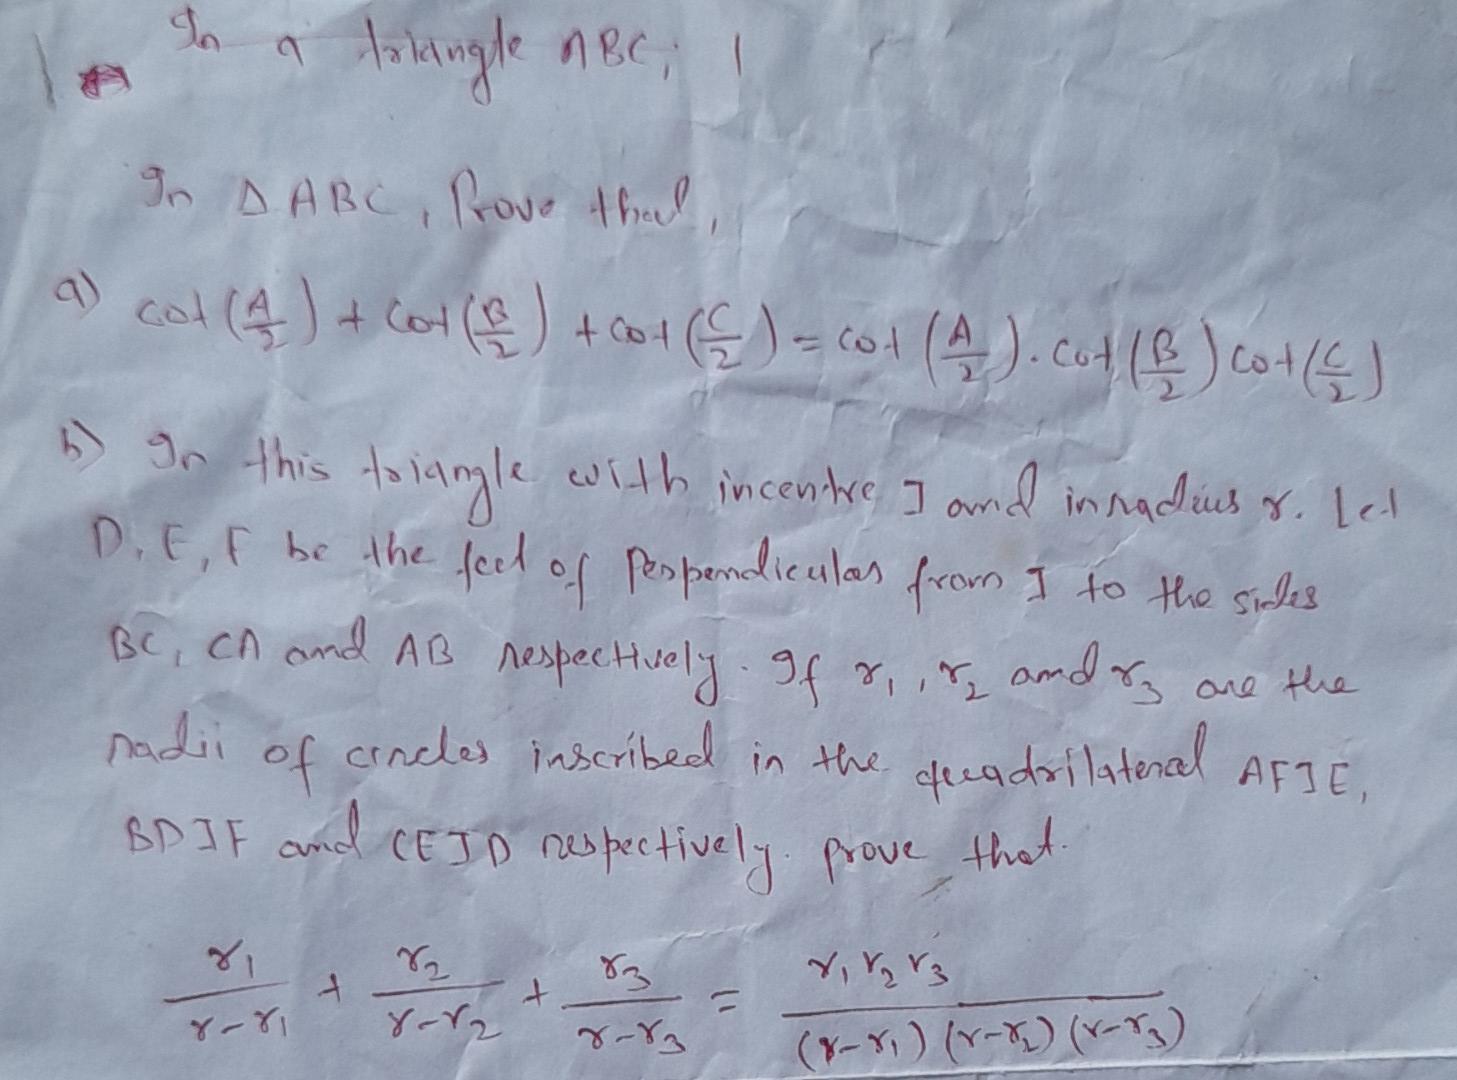 In a triangle ABC,
In Δ ABC, Prove that,
a) cot(A/2) + cot(B/2) + cot(C/2) = cot(A/2). cot(B/2) cot(C/2)
b) In this triangle with incentre I and inradius r. Let
D, E, F be the feet of Perpendiculars from I to the sides
BC, CA and AB respectively. If r₁, r₂ and r₃ are the
radii of circles inscribed in the quadrilateral AFIE,
BDIF and CEID respectively. prove that.
r₁/(r-r₁) + r₂/(r-r₂) + r₃/(r-r₃) = r₁r₂r₃/((r-r₁)(r-r₂)(r-r₃))